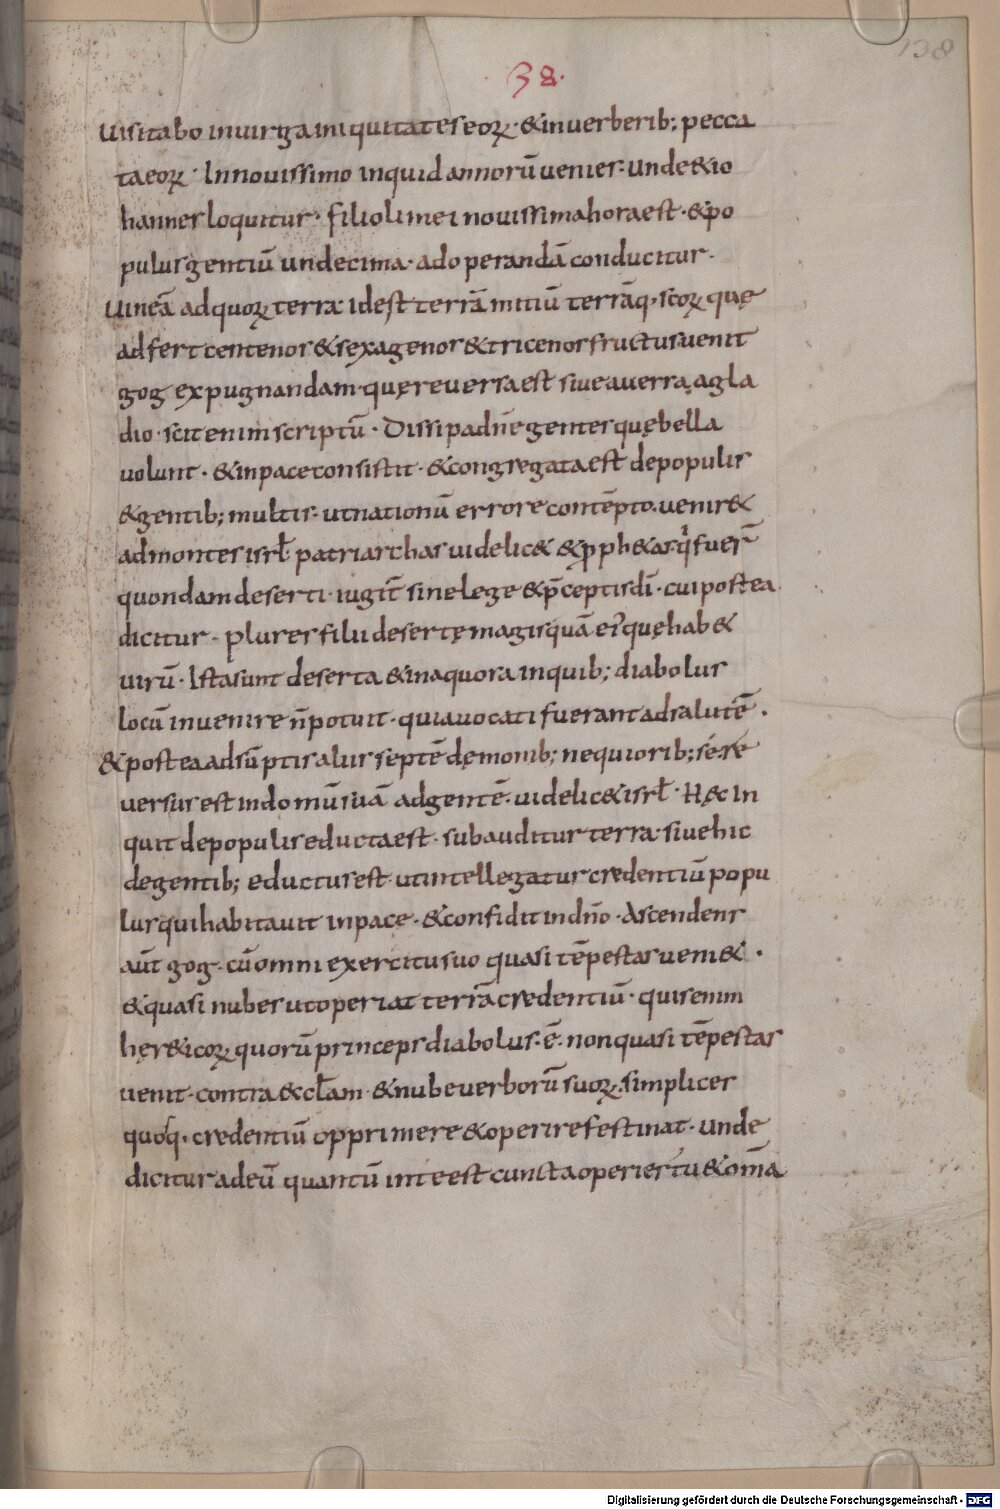 138
· 38 ·
Uisitabo inuirga iniquitates eoꝝ · &inuerberib; pecca
ta eoꝝ · In nouissimo inquid annorū uenies · unde & io
hannes loquitur · filioli mei nouissima hora est · & po
pulus gentiū undecima · ad operandā conducitur ·
Uineā ad quoꝝ terrā idest terrā mitiū terrāq · scoꝝ quę
adfert centenos & sexagenos & tricenos fructus uenit
gog expugnandam · quę reuersa est siue auerra, a gla
dio · scit enim scriptū · Dissipa dn̄e gentes quę bella
uolunt · & in pace consistit · & congregata est de populis
& gentib; multis · ut nationū errore contēpto · uenir&
ad montes isrł patriarchas uidelic& & ꝓph&as · qi fuer̄
quondam deserti · iugit̄ sine lege & p̄ceptis dī · cui postea
dicitur · Plures filii desertę magis quā ei' quę hab&
uirū · Ista sunt deserta & inaquosa in quib; diabolus
locū inuenire n̄ potuit · quia uocati fuerant ad salutē ·
& postea adsūptis aliis septē dęmonib; nequiorib; se re
uersus est in domū suā ad gentē · uidelic& isrł · Hęc in
quit de populis educta est · subauditur terra · siue hic
de gentib; eductus est ut intellegatur credentiū popu
lus qui habitauit in pace · & confidit in dn̄o · Ascendens
aūt gog · cū omni exercitu suo quasi tēpestas ueni& ·
& quasi nubes ut operiat terrā credentiū · quis enim
hęr&icoꝝ quorū princeps diabolus · ē · non quasi tēpestas
uenit · contra eccłam · & nube uerborū suoꝝ, simplices
quosq · credentiū opprimere & operire festinat · unde
dicitur ad eū quantū in te est cuncta operies · tu & om̄a
Digitalisierung gefördert durch die Deutsche Forschungsgemeinschaft - DFG